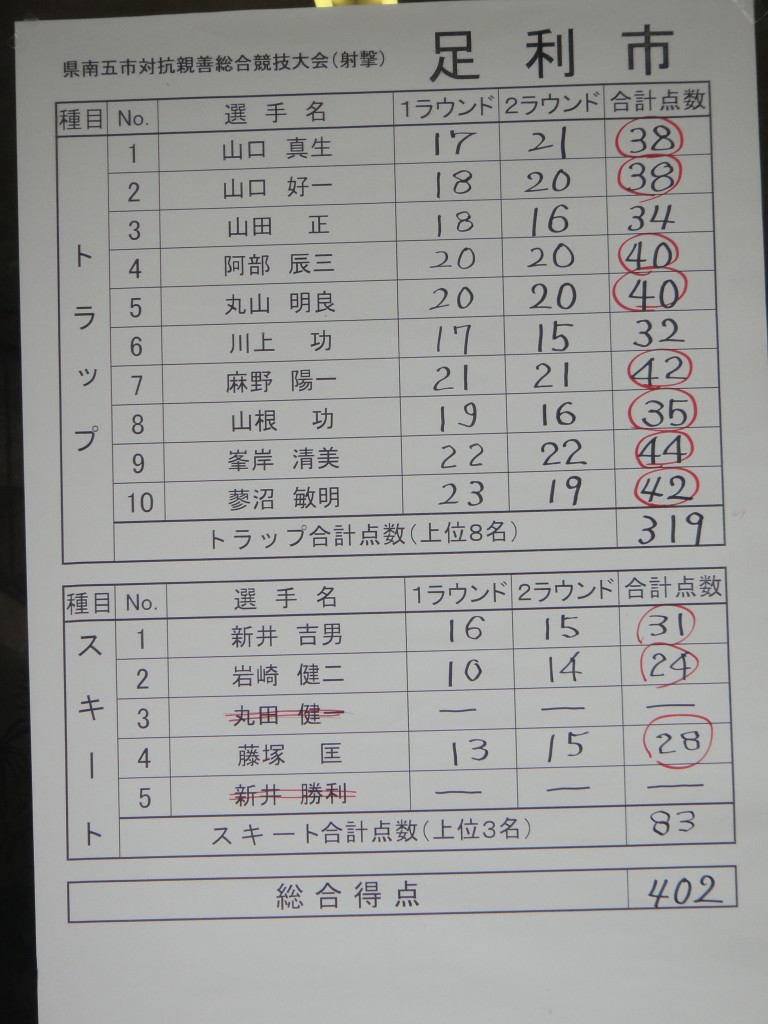 県南五市対抗親善総合競技大会(射撃) 足利市
種目 No. 選手名 1ラウンド 2ラウンド 合計点数
トラップ
1 山口 真生 17 21 38
2 山口 好一 18 20 38
3 山田 正 18 16 34
4 阿部 辰三 20 20 40
5 丸山 明良 20 20 40
6 川上 功 17 15 32
7 麻野 陽一 21 21 42
8 山根 功 19 16 35
9 峯岸 清美 22 22 44
10 蓼沼 敏明 23 19 42
トラップ合計点数(上位8名) 319
種目 No. 選手名 1ラウンド 2ラウンド 合計点数
スキート
1 新井 吉男 16 15 31
2 岩崎 健二 10 14 24
3 丸田 健一 — — —
4 藤塚 匡 13 15 28
5 新井 勝利 — — —
スキート合計点数(上位3名) 83
総合得点 402